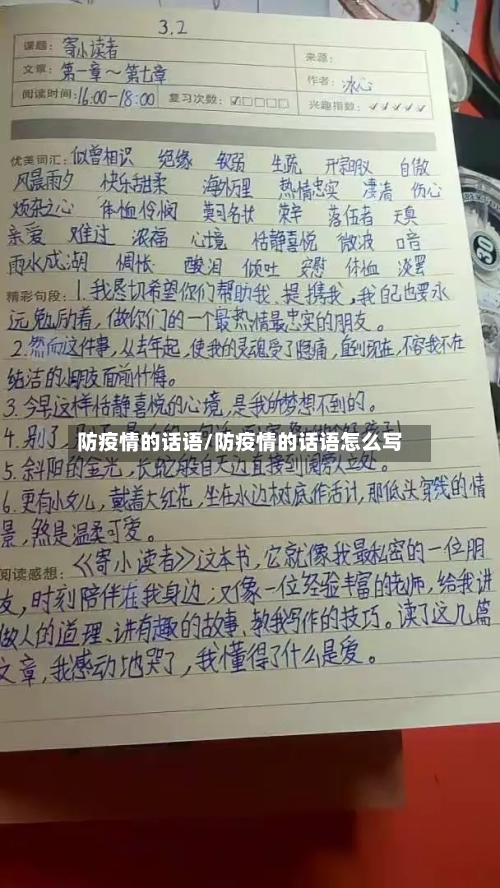 3.2
课题：寄小读者 来源：
文章：第一章～第七章 作者：冰心
阅读时间：16:00-18:00 复习次数：☑□□□□ 兴趣指数：✓✓✓✓✓
优美词汇：似曾相识 绝缘 软弱 生疏 自傲
风晨雨夕 快乐甜柔 海外万里 热情忠实 凄清 伤心
烦杂之心 体恤怜悯 莫可名状 荣幸 落伍者 天真
亲爱 难过 浓福 心境 恬静喜悦 微波 口音
雨水成湖 惆怅 酸泪 倾吐 安慰 体恤
精彩句段：1.我恳切希望你们帮助我、提携我，我自己也要永
远勉励着，做你们的一个最热情最忠实的朋友。
2.然而这件事，从去年起，使我的灵魂受了隐痛，直到现在，不容我不在
纯洁的小朋友面前忏悔。
3.今早这样恬静喜悦的心境，是我的梦想不到的。
4.别了，
防疫情的话语/防疫情的话语怎么写
5.斜阳的金光，长蛇般自天边直接到阑旁人立处。
6.更有小女儿，戴着大红花，坐在水边树底作活计，那低头穿线的情
景，煞是温柔可爱。
阅读感想：《寄小读者》这本书，它就像我最私密的一位朋
友，时刻陪伴在我身边；又像一位经验丰富的老师，给我讲
做人的道理、讲有趣的故事、教我写作的技巧。读了这几篇
文章，我感动地哭了，我懂得了什么是爱。